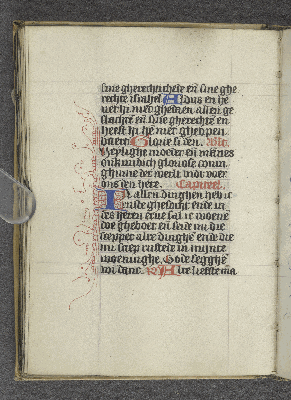 sine gherechticheit en̄ sine ghe
rechte israhel Aldus en he
vet hi niet ghedaen allen ge
slachtē en̄ sine gherechte en̄
heeft hi hē niet gheopen
baert Glorie si den. Ātc.
Heylighe moeder en̄
onser vrouwen gloriose conin
ghinne der werlt bidt voer
ons den here. Capittel.
IN allen dinghen heb ic
ruste ghesocht ende in
des heren erve sal ic woenē
doe gheboet en̄ seide mi die
scepper alre dinghē ende die
mi sciep rustede in mijnre
woeninghe. Gode segghē
wi danc. Alre liefste ma